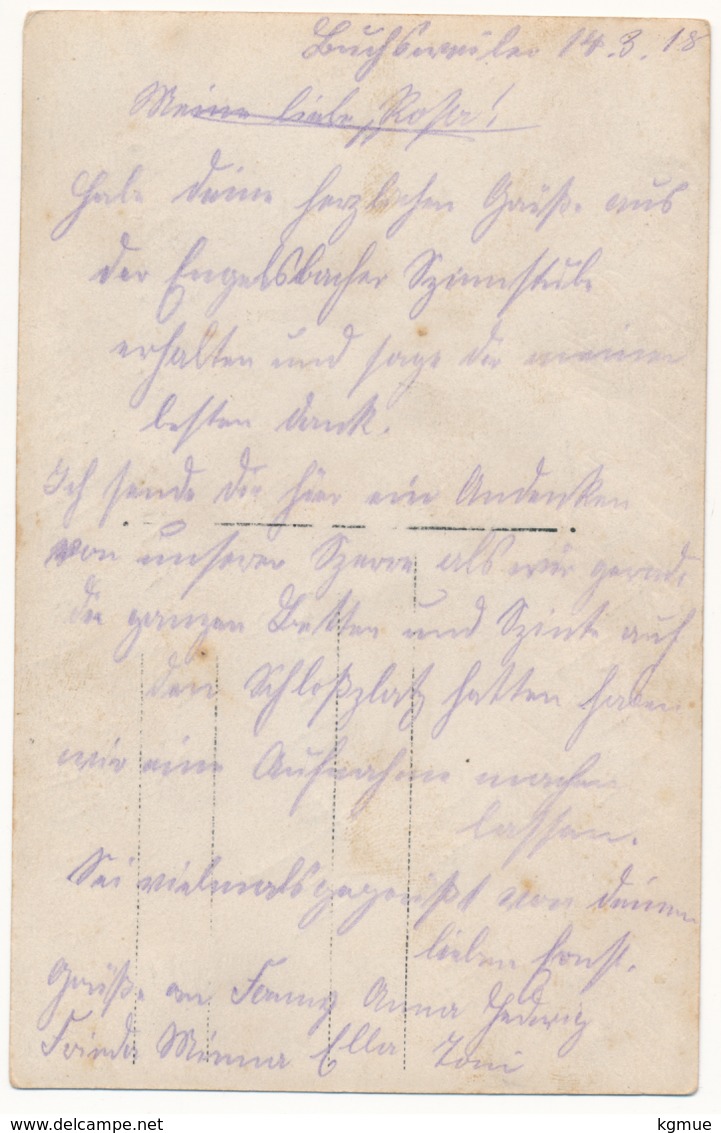 Buchsweiler 14.3.18
Meine liebe Rosa!
Habe deine herzlichen Grüße aus
der Engelsbacher Spinnstube
erhalten und sage dir meinen
besten Dank.
Ich sende dir hier ein Andenken
von unserer als wir gerade
die ganzen Betten und auf
den Schloßplatz hatten haben
wir eine Aufnahme machen
lassen.
Sei vielmals gegrüßt von deinem
lieben Ernst.
Grüße an Fanny Anna Hedwig
Frieda Minna Ella Toni
kgmue
delcampe.net